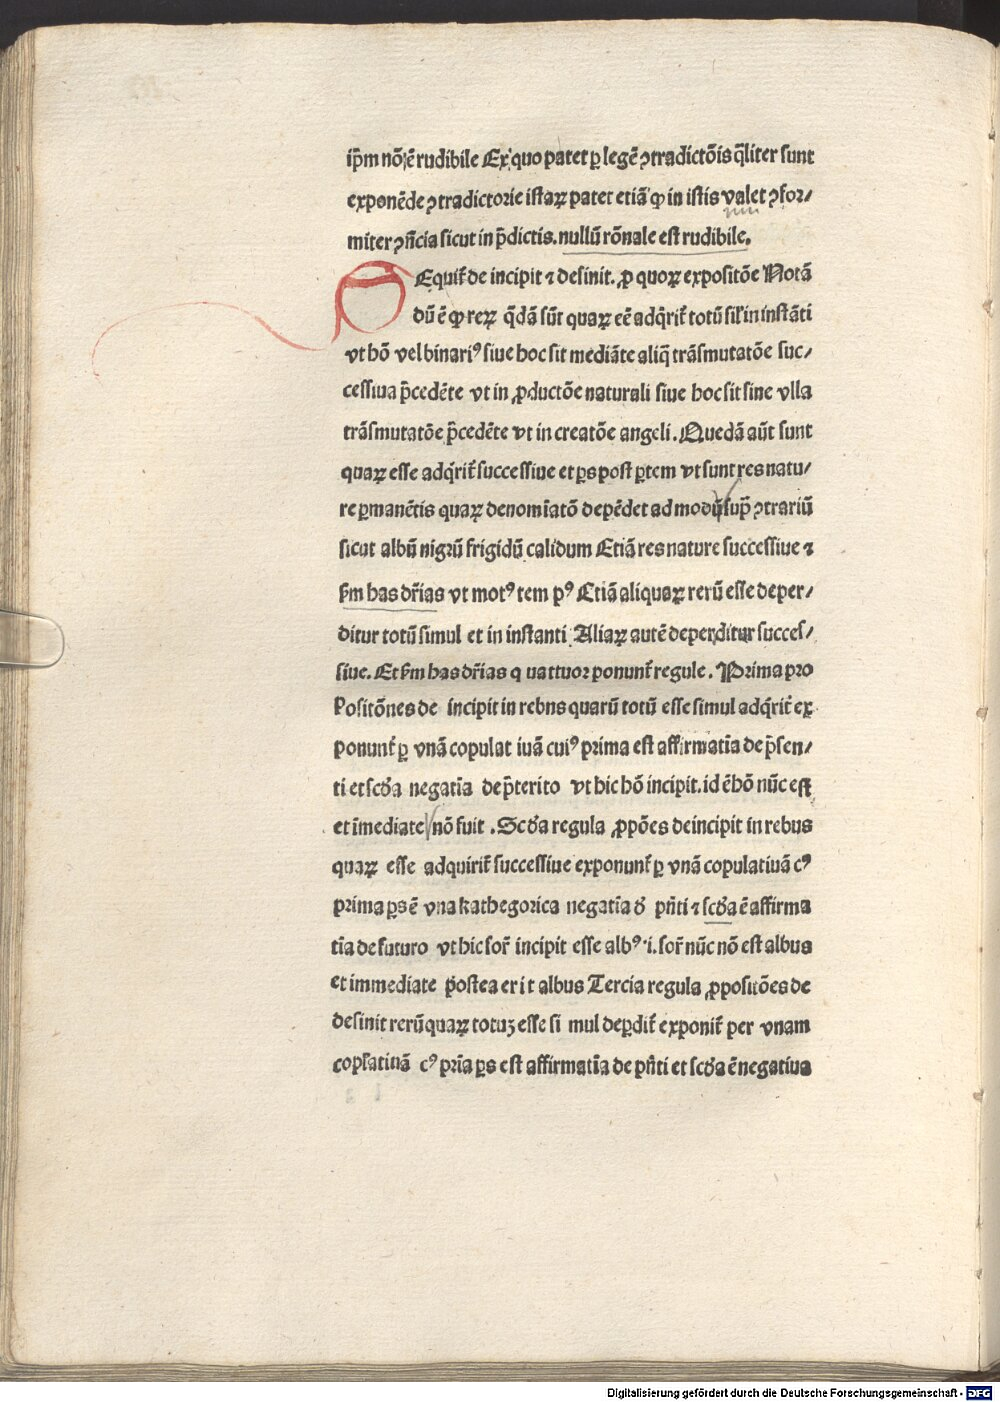 ip̄m nō ē rudibile Ex quo patet ꝑ legē ꝯtradictōis q̄liter sunt
exponēde ꝯtradictorie istaꝝ patet etiā ꝙ in istis valet ꝯfor/
miter ꝯñcia sicut in p̄dictis. nullū rōnale est rudibile.
Equit̄ de incipit ⁊ desinit. ꝓ quoꝝ expositōe Notā
dū ē ꝙ reꝝ q̄dā sūt quaꝝ eē adq̄rit̄ totū sil̄ in instāti
vt hō vel binariꝰ siue hoc sit mediāte aliq̄ trāsmutatōe suc/
cessiua p̄cedēte vt in ꝓductōe naturali siue hoc sit sine vlla
trāsmutatōe p̄cedēte vt in creatōe angeli. Quedā aūt sunt
quaꝝ esse adq̄rit̄ successiue et ꝑs post ꝑtem vt sunt res natu/
re ꝑmanētis quaꝝ denomīatō depēdet ad modū sup̄ ꝯtrariū
sicut albū nigrū frigidū calidum Etiā res nature successiue ⁊
s̄m has dr̄ias vt motꝰ tem pꝰ Etiā aliquaꝝ rerū esse deper/
ditur totū simul et in instanti Aliaꝝ autē deperditur succes/
siue. Et s̄m has dr̄ias q uattuor ponunt̄ regule. Prima pro
Positōnes de incipit in rebus quarū totū esse simul adq̄rit̄ ex
ponunt̄ ꝑ vnā copulat iuā cuiꝰ prima est affirmatīa de p̄sen/
ti et scd̄a negatīa de p̄terito vt hic hō incipit. id ē hō nūc est
et īmediate nō fuit . Scd̄a regula ꝓpōes de incipit in rebus
quaꝝ esse adquirit̄ successiue exponunt̄ ꝑ vnā copulatiuā cꝰ
prima ꝑs ē vna kathegorica negatīa d̄ pn̄ti ⁊ scd̄a ē affirma
tīa de futuro vt hic sor̄ incipit esse albꝰ .i. sor̄ nūc nō est albus
et immediate postea er i t albus Tercia regula ꝓpositōes de
desinit rerū quaꝝ totuꝫ esse si mul deꝑdit̄ exponit̄ per vnam
copl̄atiuā cꝰ prīa ꝑs est affirmatīa de pn̄ti et scd̄a ē negatiua
Digitalisierung gefördert durch die Deutsche Forschungsgemeinschaft - DFG